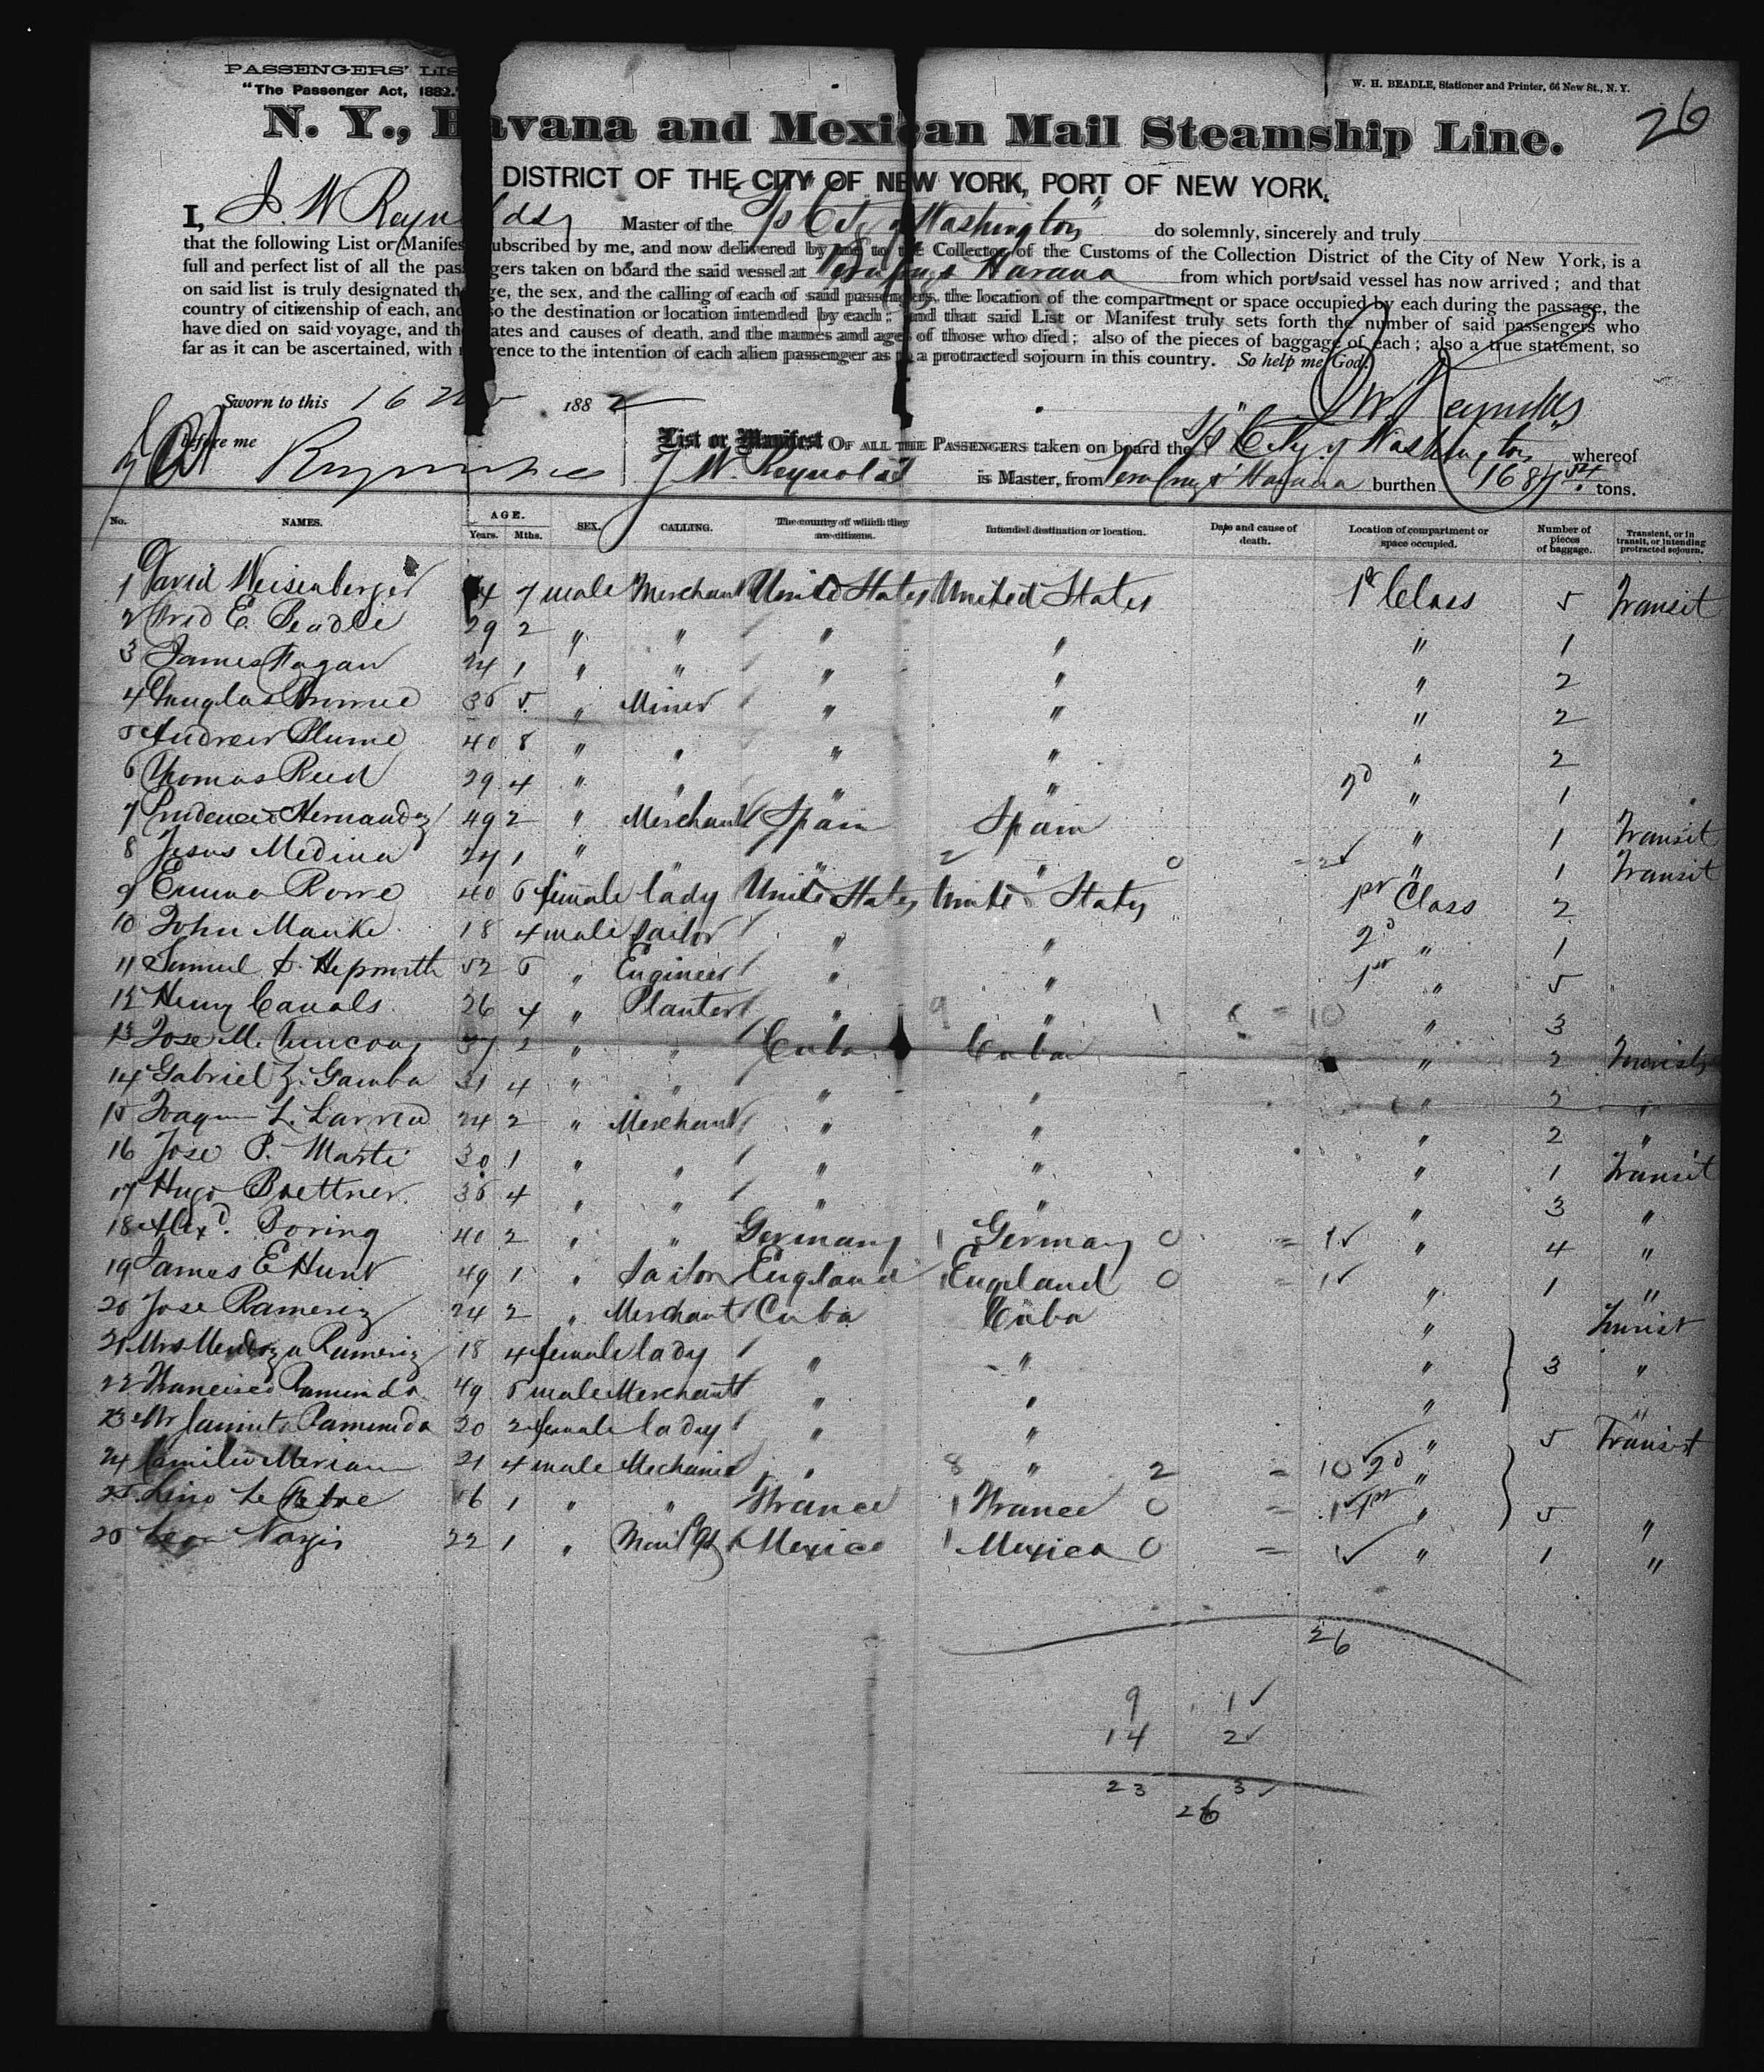 PASSENGERS' LIS
"The Passenger Act, 1882."
W. H. BEADLE, Stationer and Printer, 66 New St., N. Y.
26
N. Y., Havana and Mexican Mail Steamship Line.
DISTRICT OF THE CITY OF NEW YORK, PORT OF NEW YORK.
I, J. W Reynolds Master of the S/s "City of Washington" do solemnly, sincerely and truly
that the following List or Manifes ubscribed by me, and now delivered by me to the Collector of the Customs of the Collection District of the City of New York, is a
full and perfect list of all the pas gers taken on board the said vessel at Vera Cruz & Havana from which port said vessel has now arrived; and that
on said list is truly designated th ge, the sex, and the calling of each of said passengers, the location of the compartment or space occupied by each during the passage, the
country of citizenship of each, and so the destination or location intended by each; and that said List or Manifest truly sets forth the number of said passengers who
have died on said voyage, and th ates and causes of death, and the names and ages of those who died; also of the pieces of baggage of each; also a true statement, so
far as it can be ascertained, with rence to the intention of each alien passenger as to a protracted sojourn in this country. So help me God.
Sworn to this 16 Nov 1882 J W Reynolds
before me
List or Manifest OF ALL THE PASSENGERS taken on board the S/s "City of Washington" whereof
J. W. Reynolds is Master, from Vera Cruz & Havana burthen tons.
No. NAMES. AGE. Years. Mths. SEX. CALLING. The country of which they are citizens. Intended destination or location. Date and cause of death. Location of compartment or space occupied. Number of pieces of baggage. Transient, or in transit, or intending protracted sojourn.
1 David Weisenberger 4 7 male Merchant United States United States 1st Class 5 Transit
2 Fred E. Beadle 29 2 " " " " " 1
3 James Hagan 24 1 " " " " " 2
4 Douglas 36 5 " Miner " " " 2
5 Andrew Plume 40 8 " " " " " 2
6 Thomas Reed 29 4 " " " " 2d " 1
7 Prudencio Hernandez 49 2 " Merchant Spain Spain " 1 Transit
8 Jesus Medina 24 1 " " " 2 " 0 = 2 " 1 Transit
9 Emma Rowe 40 6 female lady United States United States 1st Class 2
10 John Manke 18 4 male Sailor " " 2d " 1
11 Samuel 52 6 " Engineer " " 1st " 5
12 Henry Canals 26 4 " Planter " 9 " 1 = 10 " 3
13 Jose M. 37 2 " " Cuba Cuba " 2
14 Gabriel Z. Gamba 31 4 " " " " " 2 "
15 Joaquin L. Larrea 24 2 " Merchant " " " 2 "
16 Jose P. Marti 30 1 " " " " " 1 Transit
17 Hugo Boettner 36 4 " " " " " 3 "
18 Alexd. Boring 40 2 " " Germany 1 Germany 0 = 1 " 4 "
19 James E Hunt 49 1 " Sailor England 1 England 0 = 1 " 1 "
20 Jose Rameriz 24 2 " Merchant Cuba Cuba "
21 Mrs Mendoza Rameriz 18 4 female lady " " " 3 "
22 Francisco 49 6 male Merchant " " "
23 20 2 female lady " " " 5 Transit
24 Camilio Meriam 21 4 male Mechanic " 8 " 2 = 10 2d "
25 Lino 1 " " France 1 France 0 = 1 1st " 5 "
26 Leon 22 1 " Mexico 1 Mexico 0 = 1 " 1 "
26
9 1
14 2
23 3
26